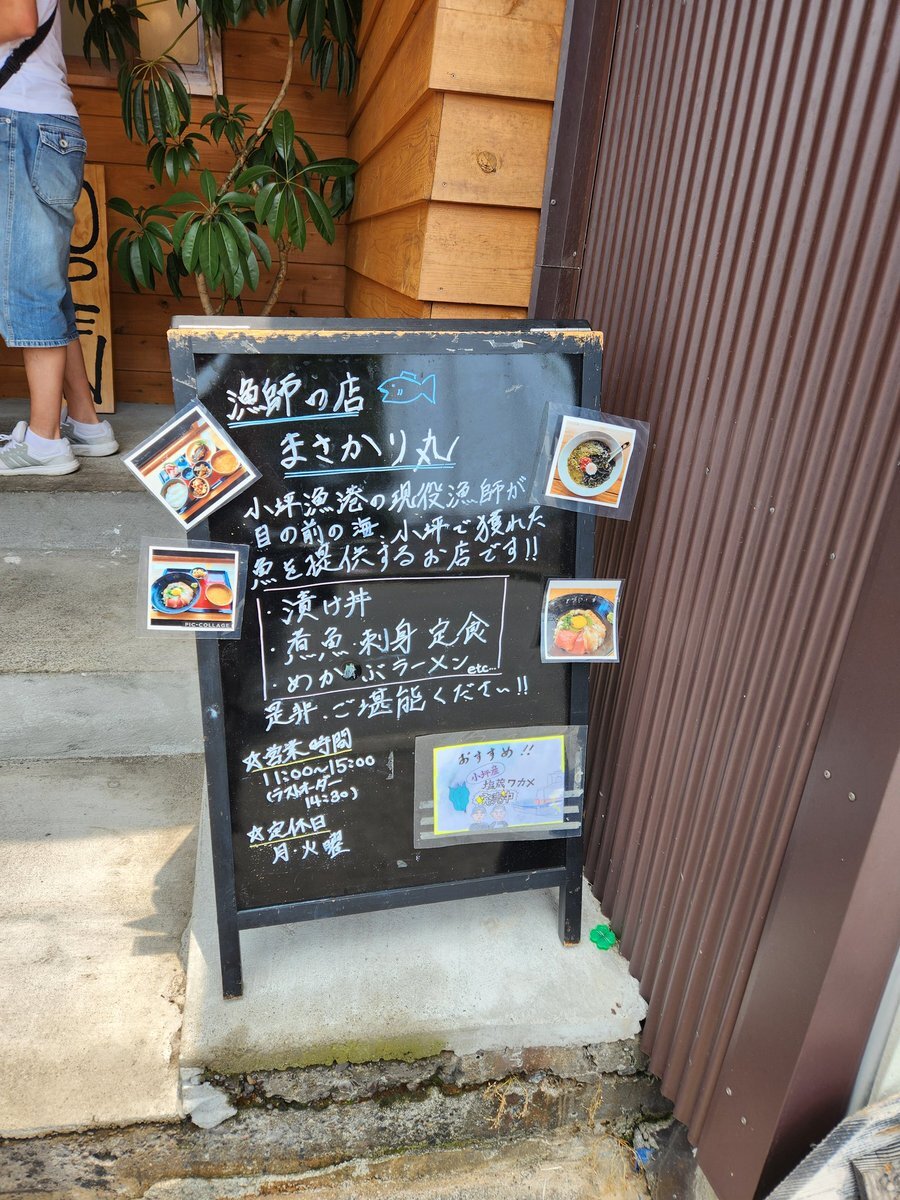 漁師の店
まさかり丸
小坪漁港の現役漁師が
目の前の海、小坪で獲れた
魚を提供するお店です!!
・漬け丼
・煮魚・刺身 定食
・めかぶラーメン etc...
是非、ご堪能ください!!
☆営業時間
11:00~15:00
(ラストオーダー
14:30)
☆定休日
月・火曜
おすすめ!!
小坪産
塩蔵ワカメ
販売中
PIC-COLLAGE